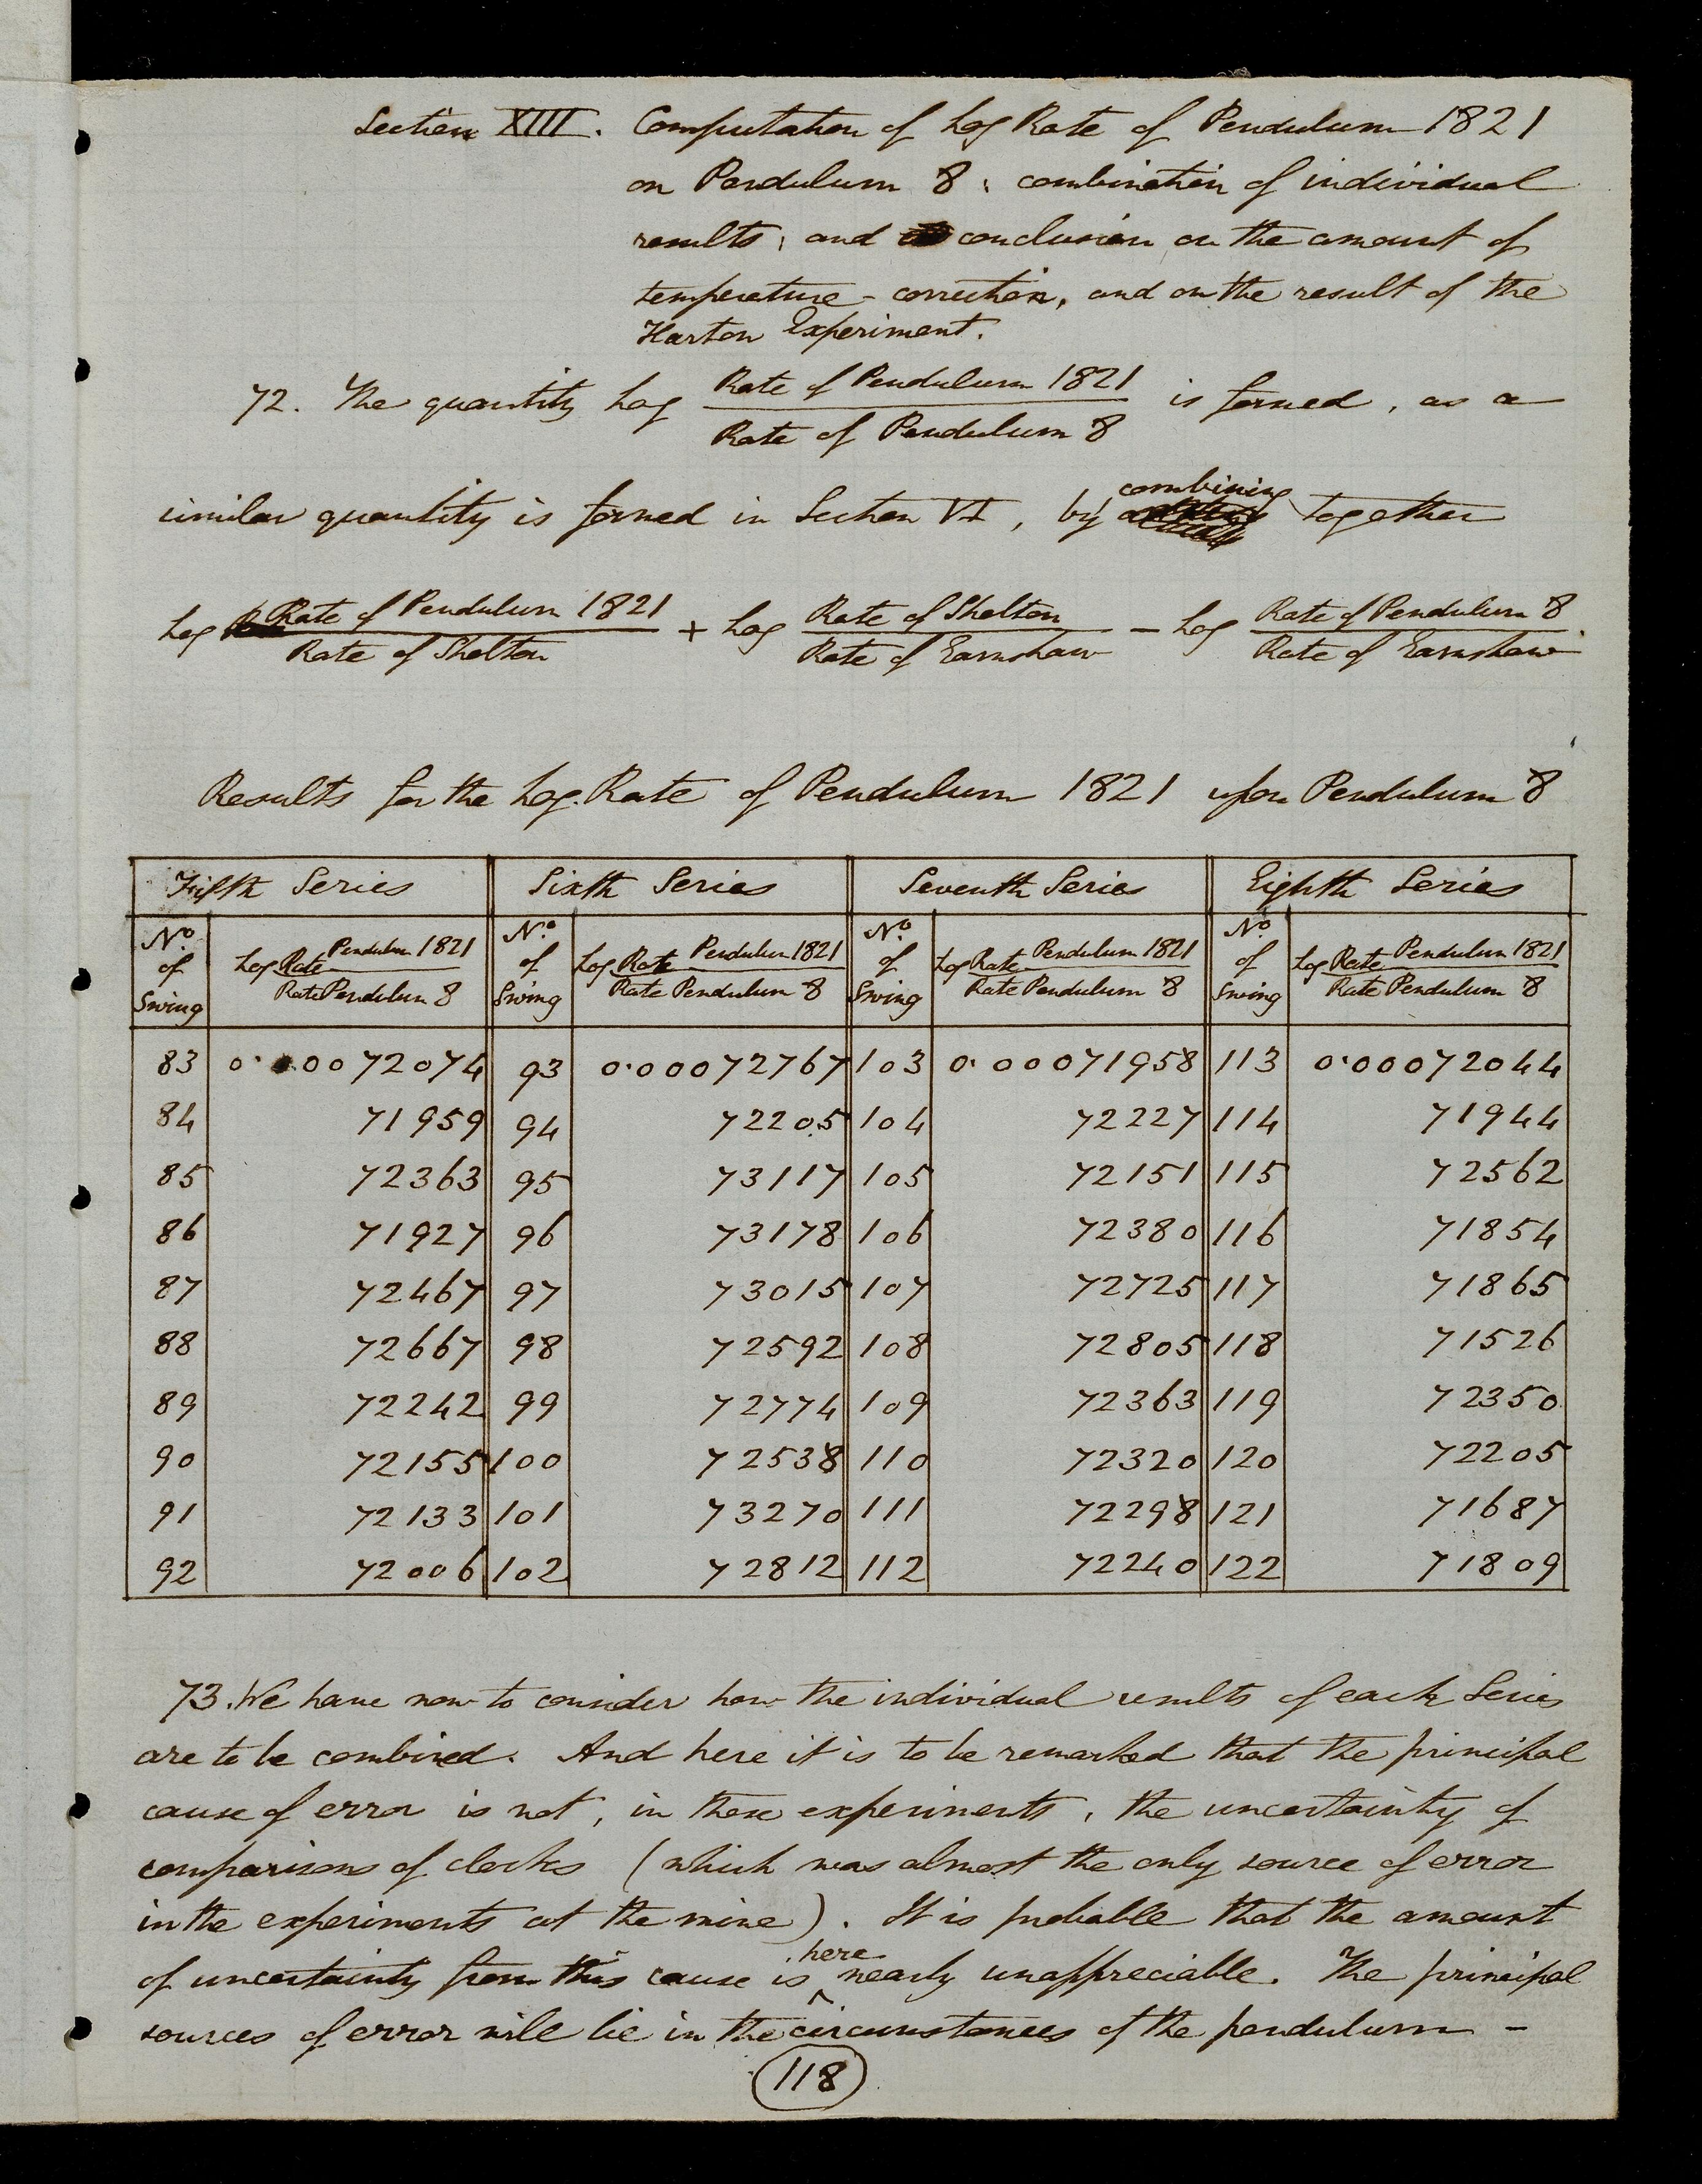 Section XIII. Computation of Log Rate of Pendulum 1821
on Pendulum 8; combination of individual
results; and conclusion on the amount of
temperature-correction, and on the result of the
Harton Experiment.
72. The quantity Log Rate of Pendulum 1821 / Rate of Pendulum 8 is formed, as a
similar quantity is formed in Section VI, by combining together
Log Rate of Pendulum 1821 / Rate of Shelton + Log Rate of Shelton / Rate of Earnshaw - Log Rate of Pendulum 8 / Rate of Earnshaw
Results for the Log. Rate of Pendulum 1821 upon Pendulum 8
Fifth Series Sixth Series Seventh Series Eighth Series
No of Swing Log Rate Pendulum 1821 / Rate Pendulum 8 No. of Swing Log Rate Pendulum 1821 / Rate Pendulum 8 No of Swing Log Rate Pendulum 1821 / Rate Pendulum 8 No of Swing Log Rate Pendulum 1821 / Rate Pendulum 8
83 0.00072074 93 0.00072767 103 0.00071958 113 0.00072044
84 71959 94 72205 104 72227 114 71944
85 72363 95 73117 105 72151 115 72562
86 71927 96 73178 106 72380 116 71854
87 72467 97 73015 107 72725 117 71865
88 72667 98 72592 108 72805 118 71526
89 72242 99 72774 109 72363 119 72350
90 72155 100 72538 110 72320 120 72205
91 72133 101 73270 111 72298 121 71687
92 72006 102 72812 112 72240 122 71809
73. We have now to consider how the individual results of each Series
are to be combined. And here it is to be remarked that the principal
cause of error is not, in these experiments, the uncertainty of
comparisons of clocks (which was almost the only source of error
in the experiments at the mine). It is probable that the amount
of uncertainty from this cause is here nearly unappreciable. The principal
sources of error will lie in the circumstances of the pendulum -
118